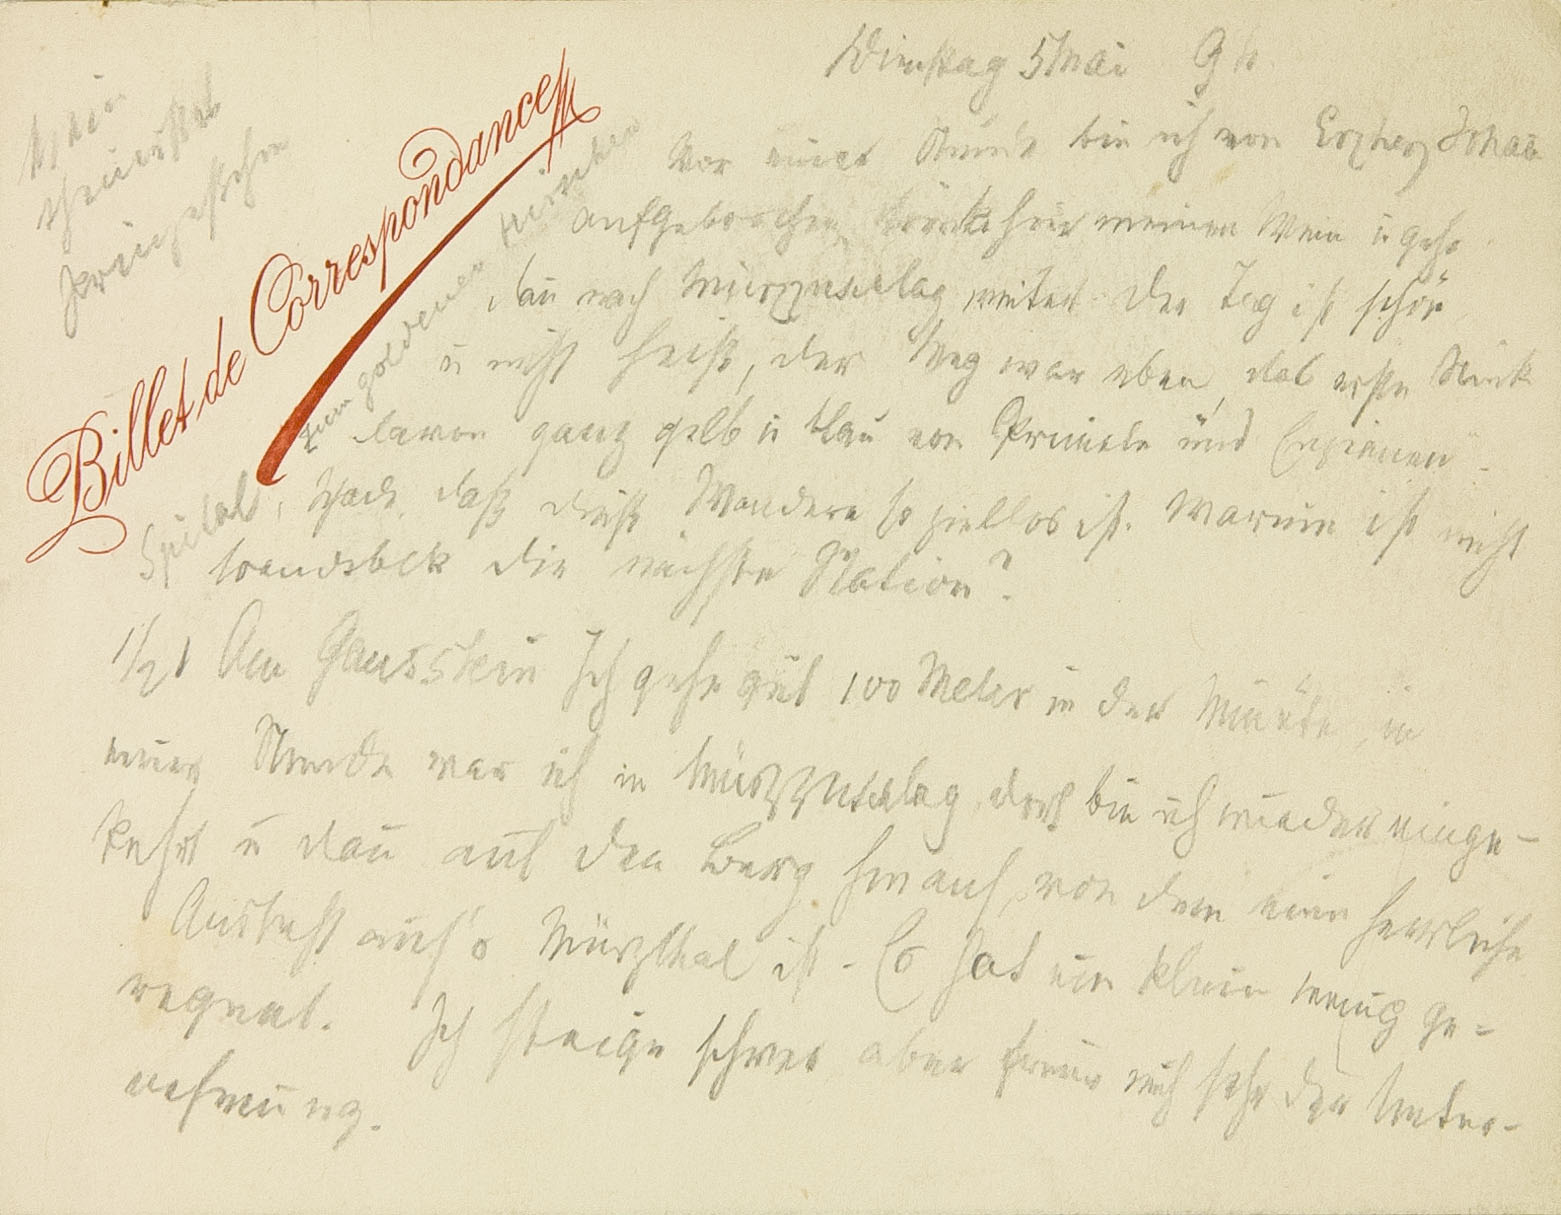 Dienstag 5 Mai 9 h
Mein
theuerstes
Prinzeßchen
Billet de Correspondance
Spital, zum goldenen Hirschen
Vor einer Stunde bin ich von Erzherz Johan
aufgebrochen, trinke hier meinen Wein u gehe
dan̄ nach Mürzzuschlag weiter. Der Tag ist schön
u nicht heiß, der Weg war eben, das erste Stück
davon ganz gelb u blau von Primeln und Enzianen.
Schade, daß dieß Wandern so ziellos ist. Warum ist nicht
Wandsbek die nächste Station?
1/2 1 Am Gansstein Ich gehe gut 100 Meter in der Minute, in
einer Stunde war ich in Mürzzuschlag, dort bin ich wieder einge-
kehrt u dan̄ auf den Berg hinauf, von dem eine herrliche
Aussicht auf's Mürzthal ist. Es hat ein klein wenig ge-
regnet. Ich steige schwer aber freue mich sehr der Unter-
nehmung.